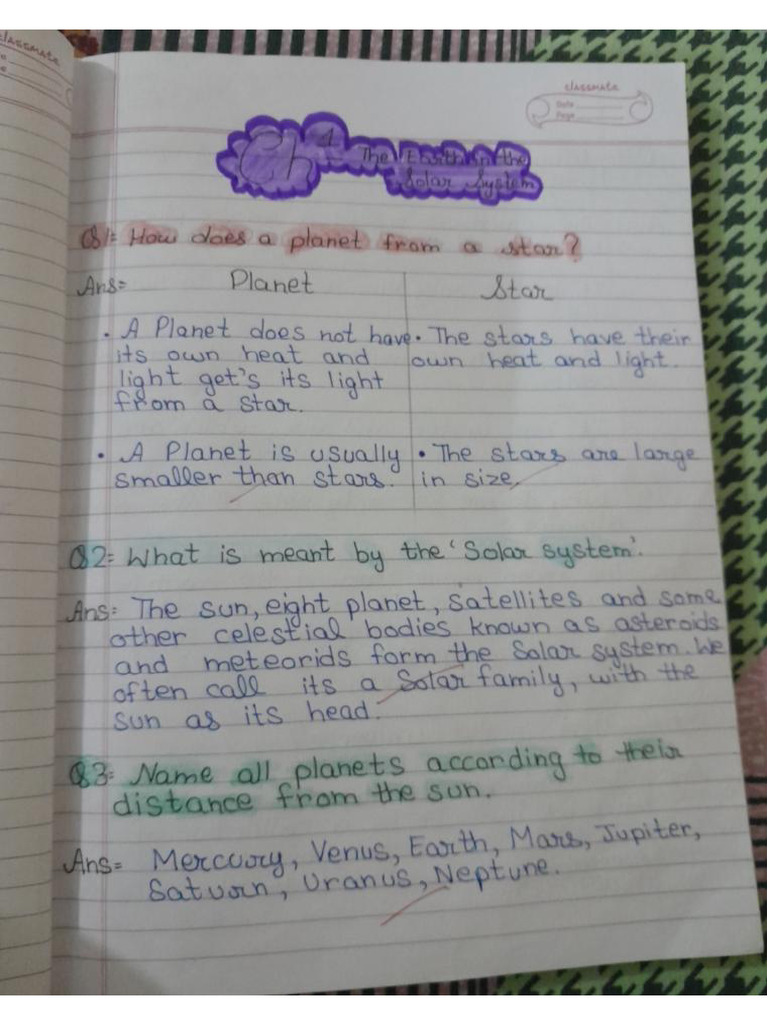 classmate
classmate
Date
Page
Ch 1 The Earth in the
Solar System
Q1= How does a planet from a star?
Ans= Planet Star
• A Planet does not have • The stars have their
its own heat and own heat and light.
light get's its light
from a star.
• A Planet is usually • The stars are large
smaller than stars. in size.
Q2= What is meant by the 'Solar system'.
Ans= The sun, eight planet, satellites and some
other celestial bodies known as asteroids
and meteorids form the Solar system. We
often call its a Solar family, with the
sun as its head.
Q3= Name all planets according to their
distance from the sun.
Ans= Mercury, Venus, Earth, Mars, Jupiter,
Saturn, Uranus, Neptune.